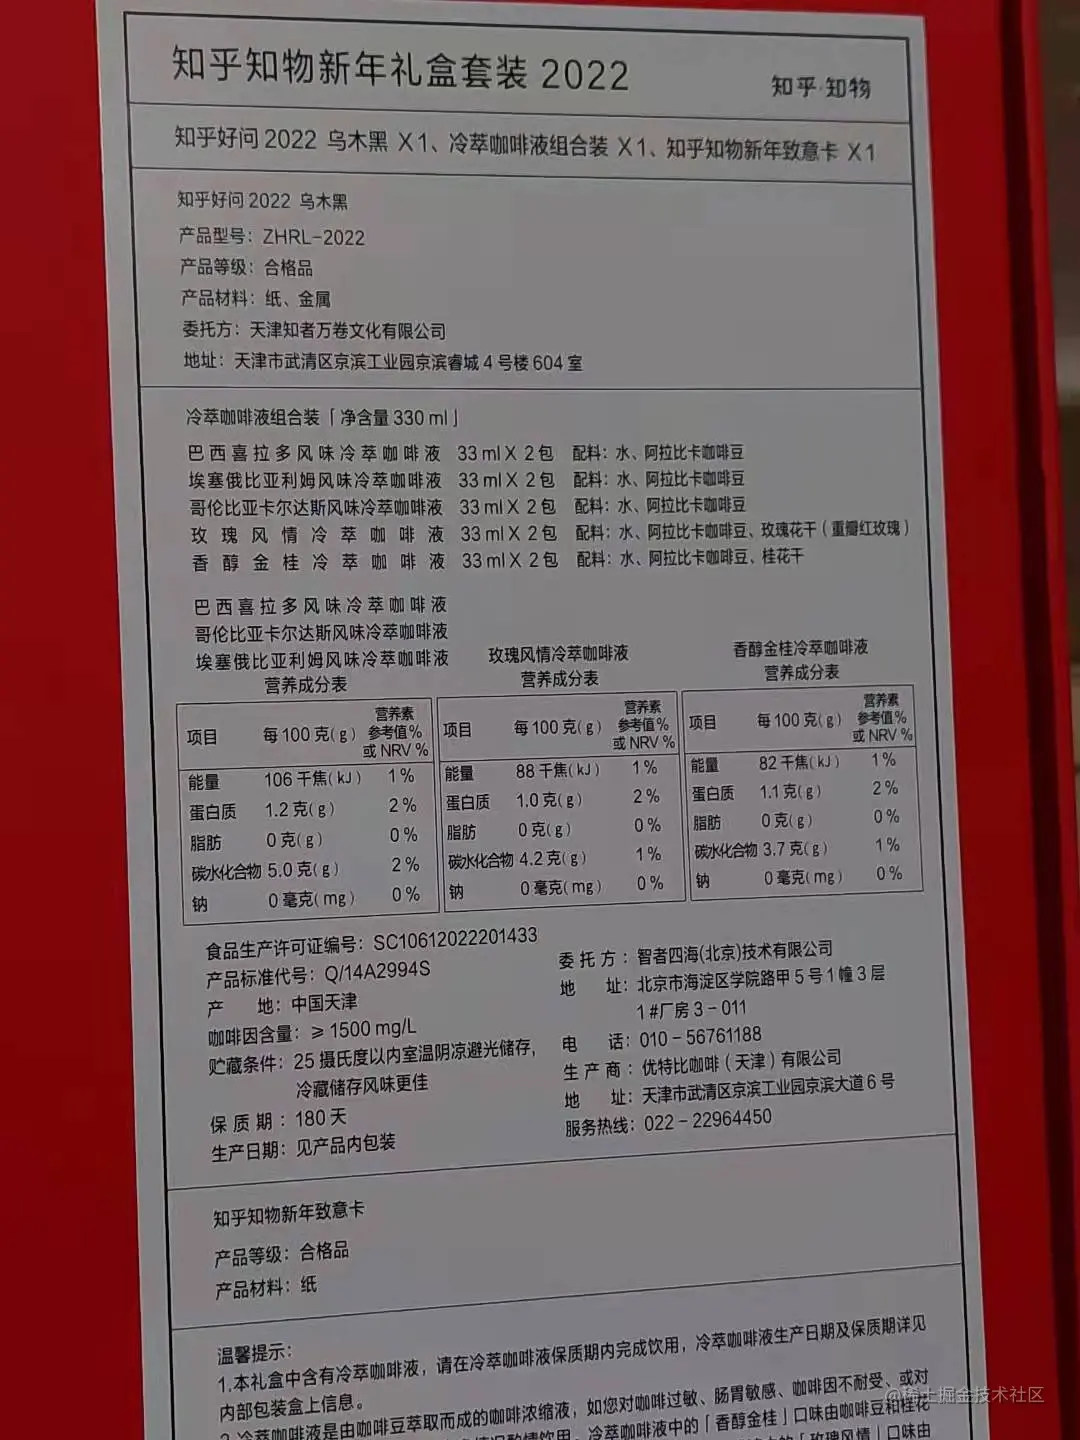 知乎知物新年礼盒套装 2022
知乎·知物
知乎好问 2022 乌木黑 X1、冷萃咖啡液组合装 X1、知乎知物新年致意卡 X1
知乎好问 2022 乌木黑
产品型号：ZHRL-2022
产品等级：合格品
产品材料：纸、金属
委托方：天津知者万卷文化有限公司
地址：天津市武清区京滨工业园京滨睿城 4 号楼 604 室
冷萃咖啡液组合装「净含量 330 ml」
巴西喜拉多风味冷萃咖啡液 33 ml X 2 包 配料：水、阿拉比卡咖啡豆
埃塞俄比亚利姆风味冷萃咖啡液 33 ml X 2 包 配料：水、阿拉比卡咖啡豆
哥伦比亚卡尔达斯风味冷萃咖啡液 33 ml X 2 包 配料：水、阿拉比卡咖啡豆
玫瑰风情冷萃咖啡液 33 ml X 2 包 配料：水、阿拉比卡咖啡豆、玫瑰花干（重瓣红玫瑰）
香醇金桂冷萃咖啡液 33 ml X 2 包 配料：水、阿拉比卡咖啡豆、桂花干
巴西喜拉多风味冷萃咖啡液
哥伦比亚卡尔达斯风味冷萃咖啡液
埃塞俄比亚利姆风味冷萃咖啡液
营养成分表
项目 每 100 克(g) 营养素参考值%或 NRV %
能量 106 千焦(kJ) 1%
蛋白质 1.2 克(g) 2%
脂肪 0 克(g) 0%
碳水化合物 5.0 克(g) 2%
钠 0 毫克(mg) 0%
玫瑰风情冷萃咖啡液
营养成分表
项目 每 100 克(g) 营养素参考值%或 NRV %
能量 88 千焦(kJ) 1%
蛋白质 1.0 克(g) 2%
脂肪 0 克(g) 0%
碳水化合物 4.2 克(g) 1%
钠 0 毫克(mg) 0%
香醇金桂冷萃咖啡液
营养成分表
项目 每 100 克(g) 营养素参考值%或 NRV %
能量 82 千焦(kJ) 1%
蛋白质 1.1 克(g) 2%
脂肪 0 克(g) 0%
碳水化合物 3.7 克(g) 1%
钠 0 毫克(mg) 0%
食品生产许可证编号：SC10612022201433
产品标准代号：Q/14A2994S
产地：中国天津
咖啡因含量：≥ 1500 mg/L
贮藏条件：25 摄氏度以内室温阴凉避光储存，
冷藏储存风味更佳
保质期：180 天
生产日期：见产品内包装
委托方：智者四海(北京)技术有限公司
地址：北京市海淀区学院路甲 5 号 1 幢 3 层
1#厂房 3-011
电话：010-56761188
生产商：优特比咖啡（天津）有限公司
地址：天津市武清区京滨工业园京滨大道 6 号
服务热线：022-22964450
知乎知物新年致意卡
产品等级：合格品
产品材料：纸
温馨提示：
1.本礼盒中含有冷萃咖啡液，请在冷萃咖啡液保质期内完成饮用，冷萃咖啡液生产日期及保质期详见
内部包装盒上信息。
2.冷萃咖啡液是由咖啡豆萃取而成的咖啡浓缩液，如您对咖啡过敏、肠胃敏感、咖啡因不耐受、或对
情况酌情饮用。冷萃咖啡液中的「香醇金桂」口味由咖啡豆和桂花
「玫瑰风情」口味由
@稀土掘金技术社区